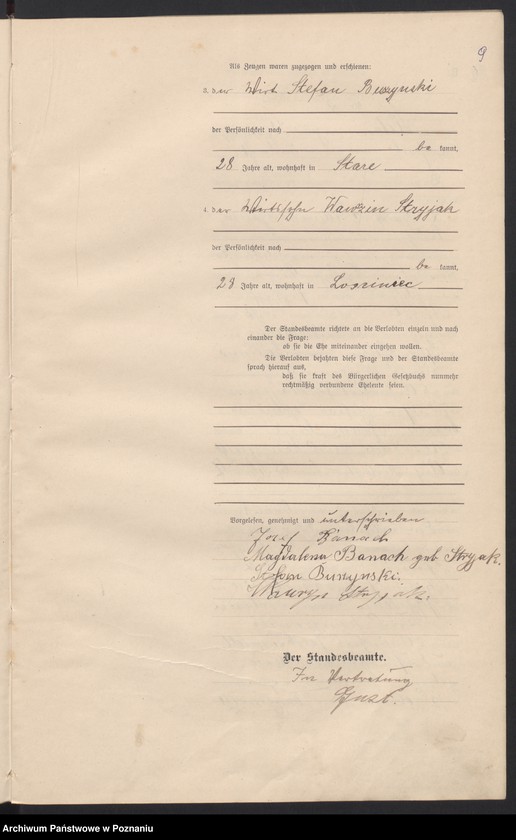 9
Als Zeugen waren zugezogen und erschienen:
3. der Wirt Stefan Buszynski
der Persönlichkeit nach
be kannt,
28 Jahre alt, wohnhaft in Stare
4. der Wirtssohn Wawrzin Stryjak
der Persönlichkeit nach
be kannt,
23 Jahre alt, wohnhaft in Losziniec
Der Standesbeamte richtete an die Verlobten einzeln und nach
einander die Frage:
ob sie die Ehe miteinander eingehen wollen.
Die Verlobten bejahten diese Frage und der Standesbeamte
sprach hierauf aus,
daß sie kraft des Bürgerlichen Gesetzbuchs nunmehr
rechtmäßig verbundene Eheleute seien.
Vorgelesen, genehmigt und unterschrieben
Józef Banach
Magdalena Banach geb. Stryjak.
Stefan Buszynski.
Stryjak.
Der Standesbeamte.
In Vertretung
Archiwum Państwowe w Poznaniu